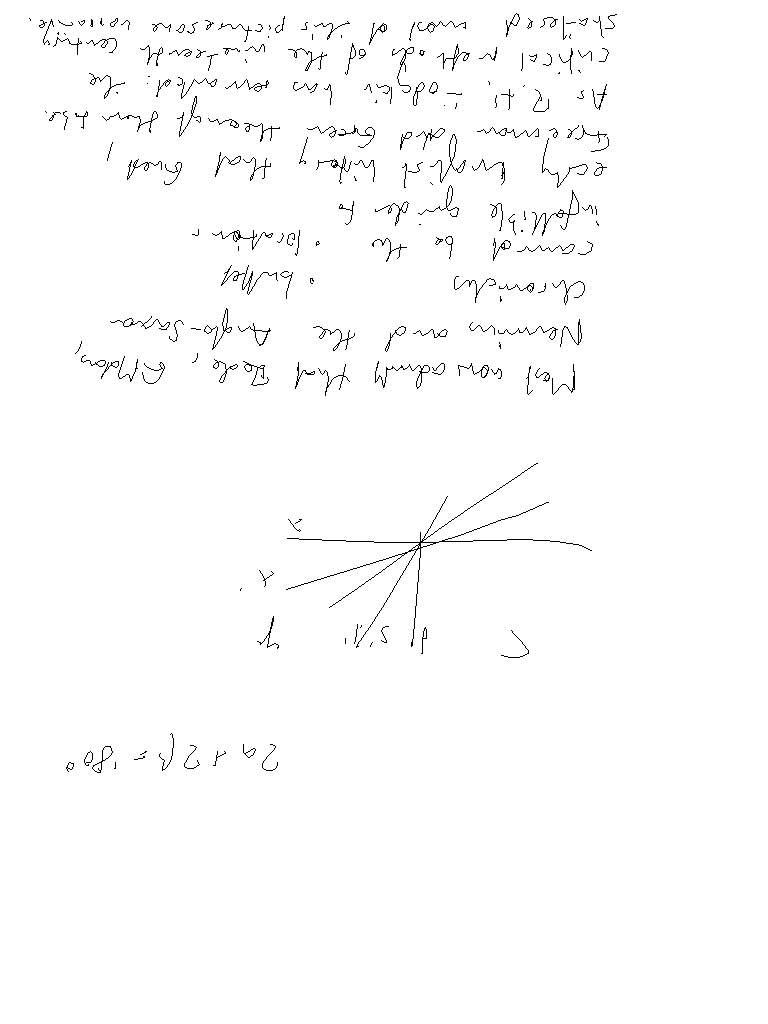 2a + 2β = 180°
Most now admit that Bede, Gildas,
Nennius and the Anglo-Saxon
Chronicles • buffet
cannot be the • location
infallible guides to
early English history that Guest,
Freeman and Green thought them to be.
As R. H. has remarked: the
critical methods of the nineteenth century
shattered most of this picturesque narrative.